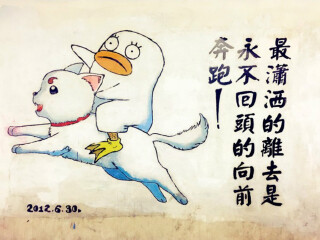 最瀟洒的離去是
永不回頭的向前
奔跑！
2012.6.30.